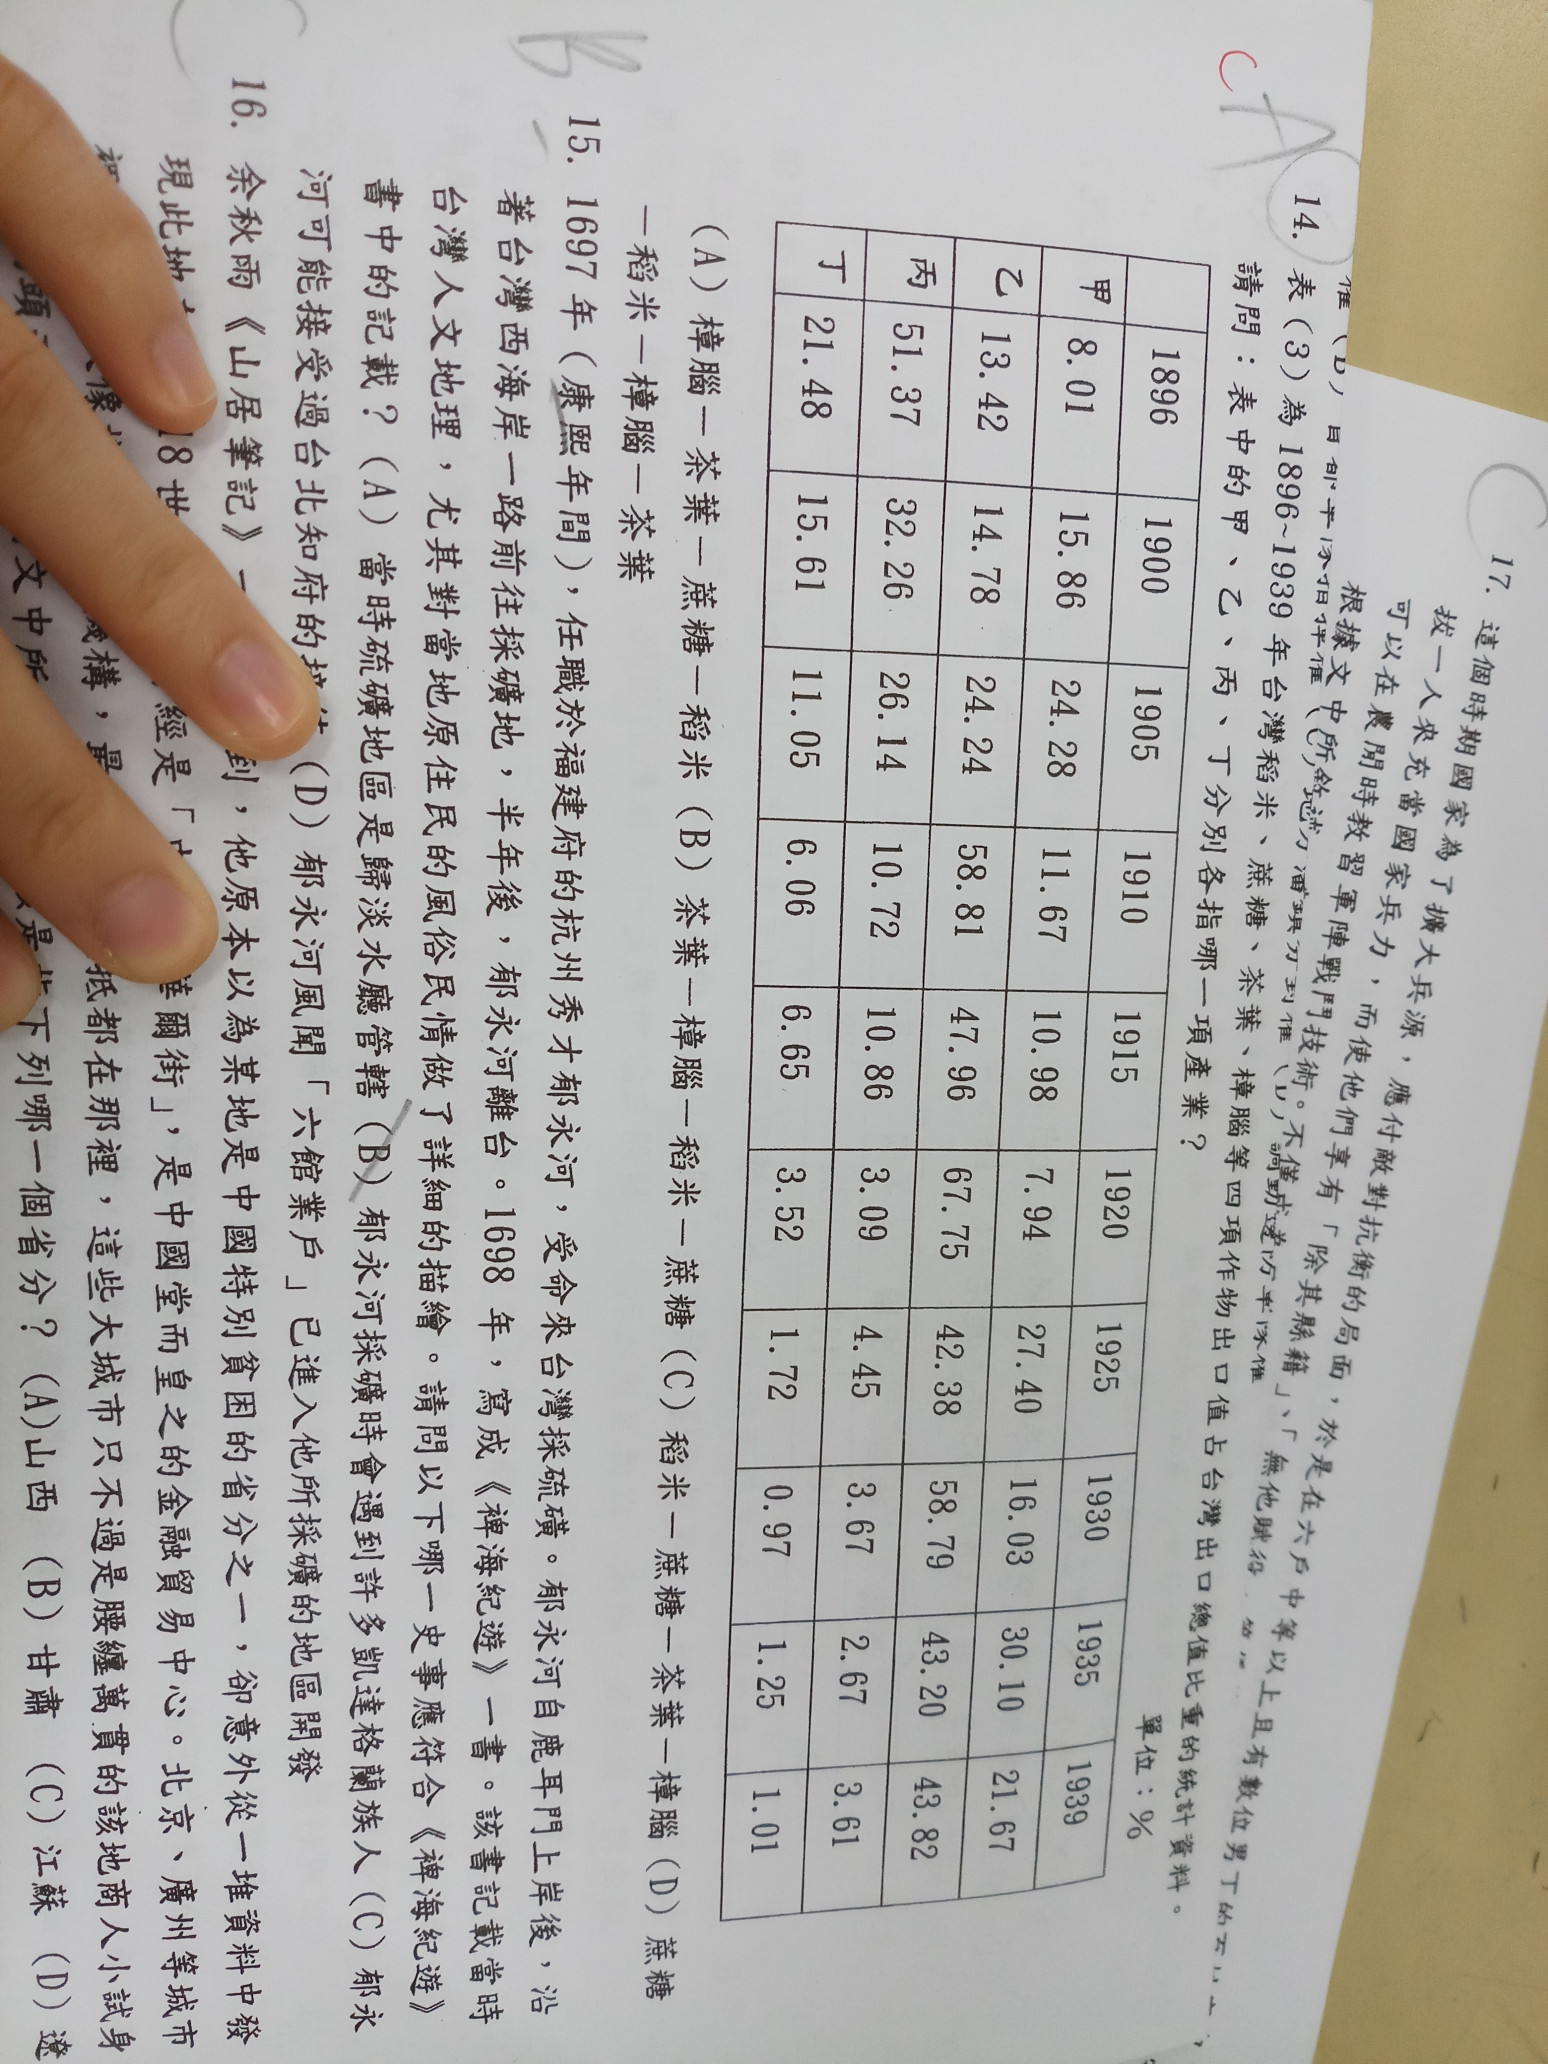 C
17. 這個時期國家為了擴大兵源，應付敵對抗衡的局面，於是在六戶中等以上且有數位男丁的
拔一人來充當國家兵力，而使他們享有「除其縣籍」、「無他賦役
可以在農閒時教習軍陣戰鬥技術。不僅
根據文中所敘述
C A
14. 表（3）為 1896~1939 年台灣稻米、蔗糖、茶葉、樟腦等四項作物出口值占台灣出口總值比重的統計資料。
請問：表中的甲、乙、丙、丁分別各指哪一項產業？
單位：%
1896 1900 1905 1910 1915 1920 1925 1930 1935 1939
甲 8.01 15.86 24.28 11.67 10.98 7.94 27.40 16.03 30.10 21.67
乙 13.42 14.78 24.24 58.81 47.96 67.75 42.38 58.79 43.20 43.82
丙 51.37 32.26 26.14 10.72 10.86 3.09 4.45 3.67 2.67 3.61
丁 21.48 15.61 11.05 6.06 6.65 3.52 1.72 0.97 1.25 1.01
（A）樟腦—茶葉—蔗糖—稻米（B）茶葉—樟腦—稻米—蔗糖（C）稻米—蔗糖—茶葉—樟腦（D）蔗糖
—稻米—樟腦—茶葉
B
15. 1697 年（康熙年間），任職於福建府的杭州秀才郁永河，受命來台灣採硫磺。郁永河自鹿耳門上岸後，沿
著台灣西海岸一路前往採礦地，半年後，郁永河離台。1698 年，寫成《裨海紀遊》一書。該書記載當時
台灣人文地理，尤其對當地原住民的風俗民情做了詳細的描繪。請問以下哪一史事應符合《裨海紀遊》
書中的記載？（A）當時硫礦地區是歸淡水廳管轄（B）郁永河採礦時會遇到許多凱達格蘭族人（C）郁永
河可能接受過台北知府的招待（D）郁永河風聞「六館業戶」已進入他所採礦的地區開發
16. 余秋雨《山居筆記》一到，他原本以為某地是中國特別貧困的省分之一，卻意外從一堆資料中發
現此地18世經是「華爾街」，是中國堂而皇之的金融貿易中心。北京、廣州等城市
機構，最抵都在那裡，這些大城市只不過是腰纏萬貫的該地商人小試身
文中所是下列哪一個省分？（A)山西（B）甘肅（C）江蘇（D）遼